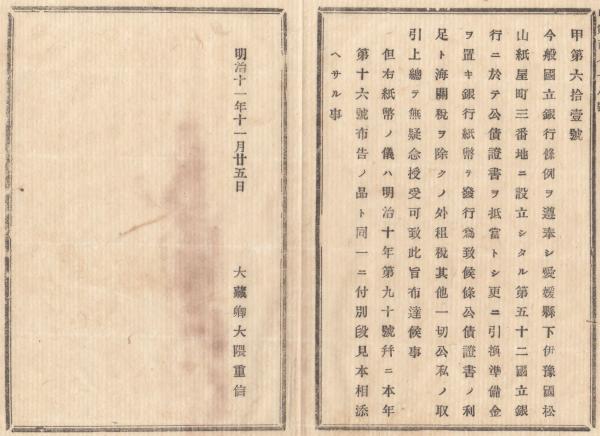 甲第六拾壹號
今般國立銀行條例ヲ遵奉シ愛媛縣下伊豫國松
山紙屋町三番地ニ設立シタル第五十二國立銀
行ニ於テ公債證書ヲ抵當トシ更ニ引換準備金
ヲ置キ銀行紙幣ヲ發行爲致候條公債證書ノ利
足ト海關稅ヲ除クノ外租稅其他一切公私ノ取
引上總テ無疑念授受可致此旨布達候事
但右紙幣ノ儀ハ明治十年第九十號幷ニ本年
第十六號布告ノ品ト同一ニ付別段見本相添
ヘサル事
明治十一年十一月廿五日
大藏卿大隈重信